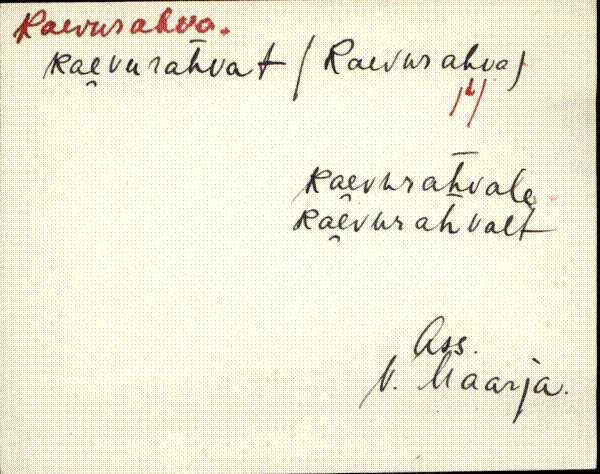 Raevurahva.
Raevurahvat / Raevurahva /
Raevurahvale
Raevurahvalt
Ass.
V. Maarja.